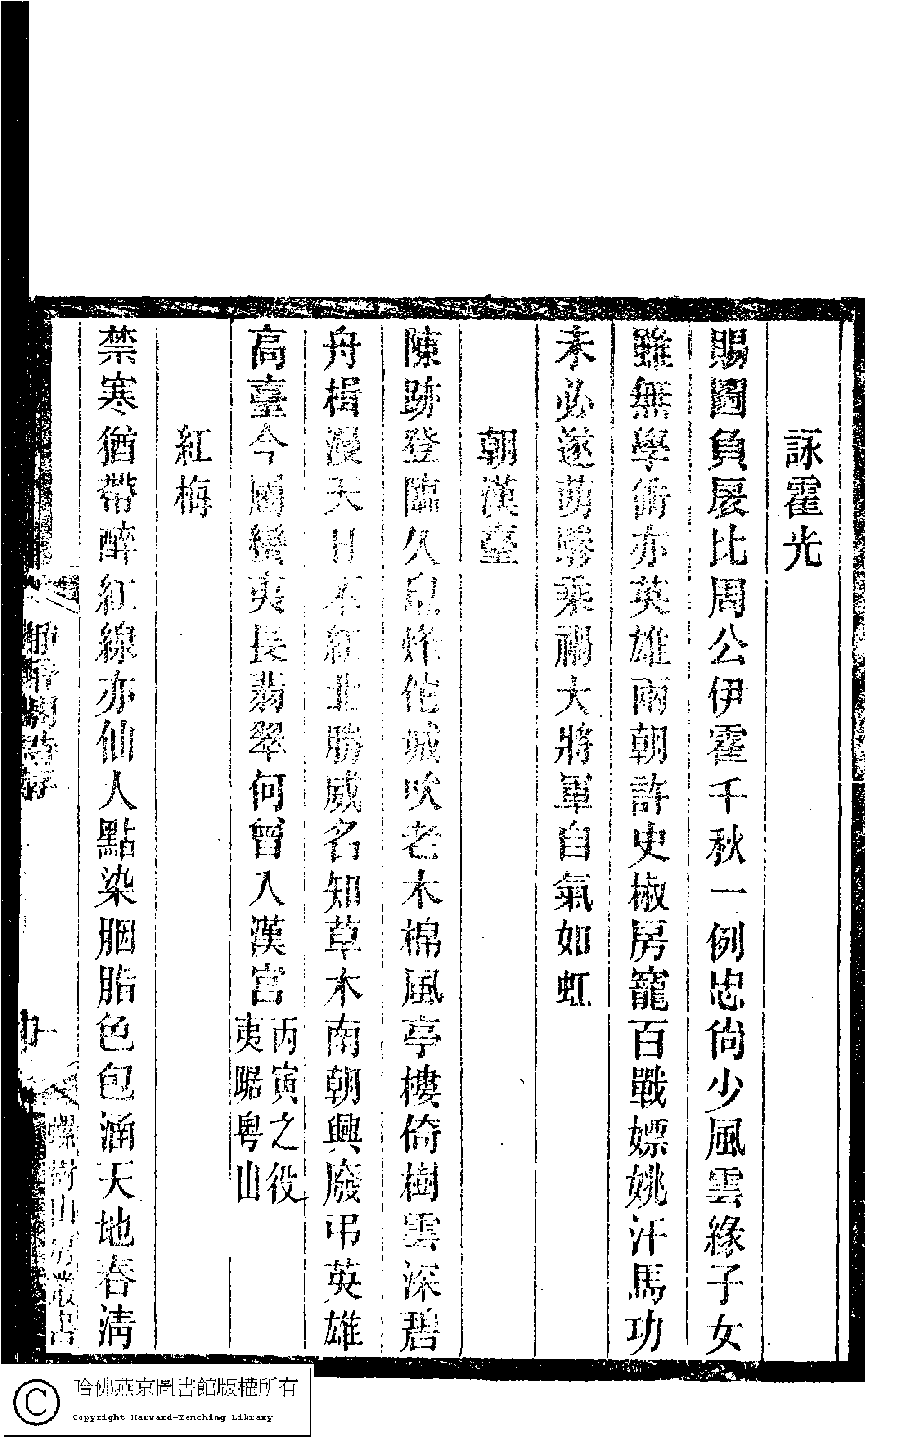 詠霍光
賜圖負扆比周公伊霍千秋一例忠尙少風雲緣子女
雖無學術亦英雄兩朝許史椒房寵百戰嫖姚汗馬功
未必遂萌驂乘禍大將軍自氣如虹
朝漢臺
陳跡登臨久息烽佗城吹老木棉風亭樓倚樹雲深碧
舟楫漫天日不紅北勝威名知草木南朝興廢弔英雄
高臺今屬蠻夷長翡翠何曾入漢宮丙寅之役
夷踞粤山
紅梅
禁寒猶帶醉紅線亦仙人點染胭脂色包涵天地春清
螺樹山房叢書
哈佛燕京圖書館版權所有
Copyright Harvard-Yenching Library